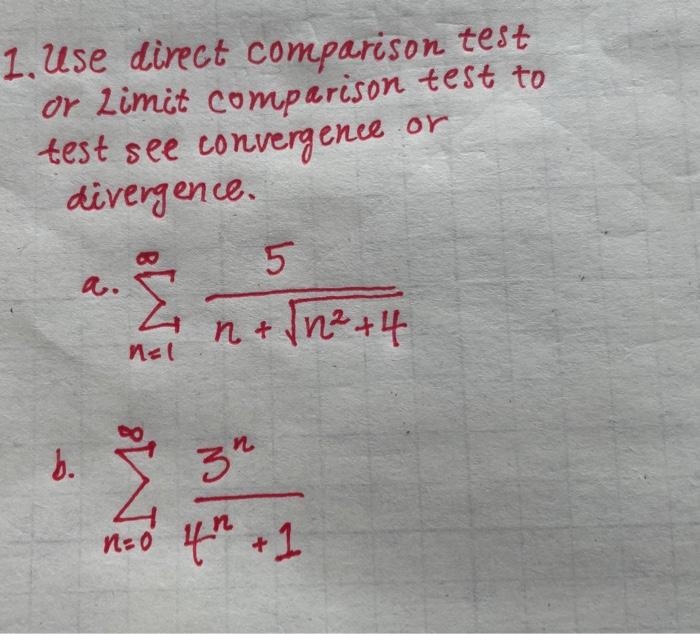 1. Use direct comparison test
or Limit comparison test to
test see convergence or
divergence.
a. ∞ ∑ n=1 5 / n + √n² + 4
b. ∞ ∑ n=0 3ⁿ / 4ⁿ + 1